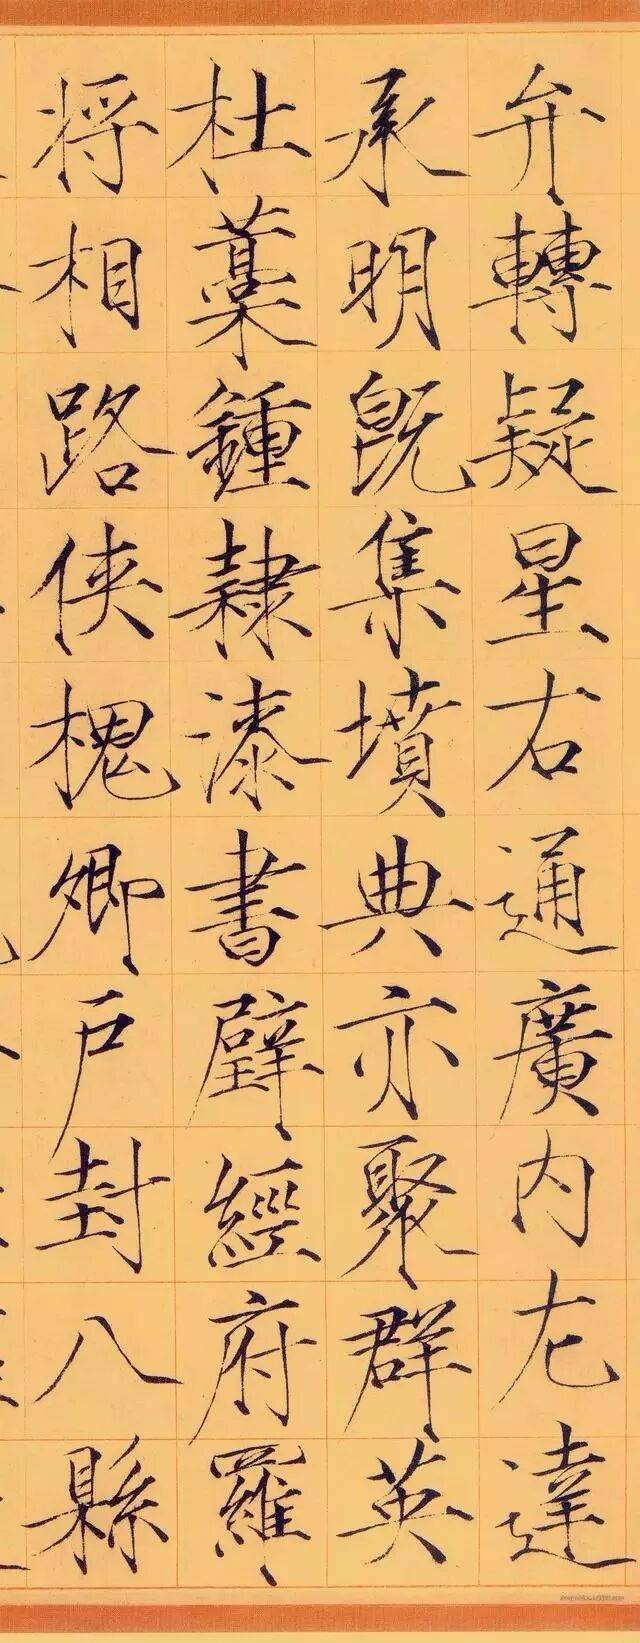 弁轉疑星右通廣内左達
承明既集墳典亦聚群英
杜藁鍾隸漆書壁經府羅
将相路俠槐卿户封八縣